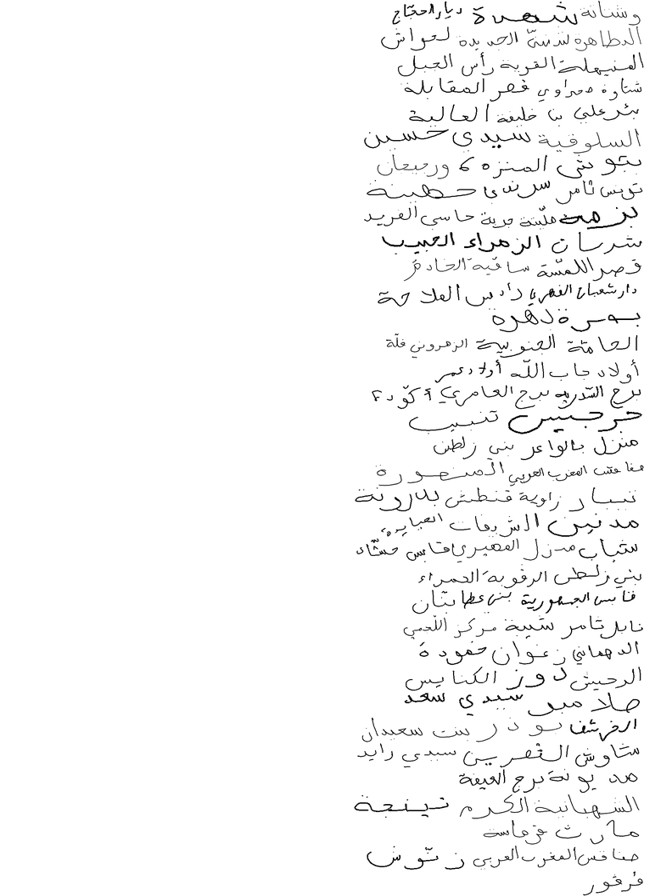 وشتاتة شهدة ديار الحجاج
الطاهرة الجديدة لعواش
المنيهلة القرية رأس الجبل
شتاوة صحراوي قصر المقابلة
بئر علي بن خليفة العالية
السلوقية سيدي حسين
المنزه 6 ورجيعان
تونس ثامر سرندي حطينة
بنزرت جديدة حاسي الفريد
شرسان الزهراء الحبيب
قصر اللمسة ساقية الخادم
دار شعبان الفهري رادس الملاحة
دهرة
الحامة الجنوبية الزهروني قلة
أولاد جاب الله أولاد عمر
برج السدرية برج العامري أكودة
جرجيس
منزل بني زلطن
المغرب العربي المنصورة
تيبار زاوية قنطش
مدنين الشريفات العبايدة
شباب منزل المهيري قابس حشاد
بني زلطن الرقوبة الحمراء
قابس الجمهورية
نابل ثامر شيبة مركز اللجمي
الدهماني زغوان حمودة
الرحيش دوز الكنايس
صلامبو سيدي سعد
بوذر بنت سعيدان
شاوش القصرين سيدي رايد
برج الفيفة
الشهبانية الكرم تينجة
مارث قرماسة
صفاقس المغرب العربي
قرقور